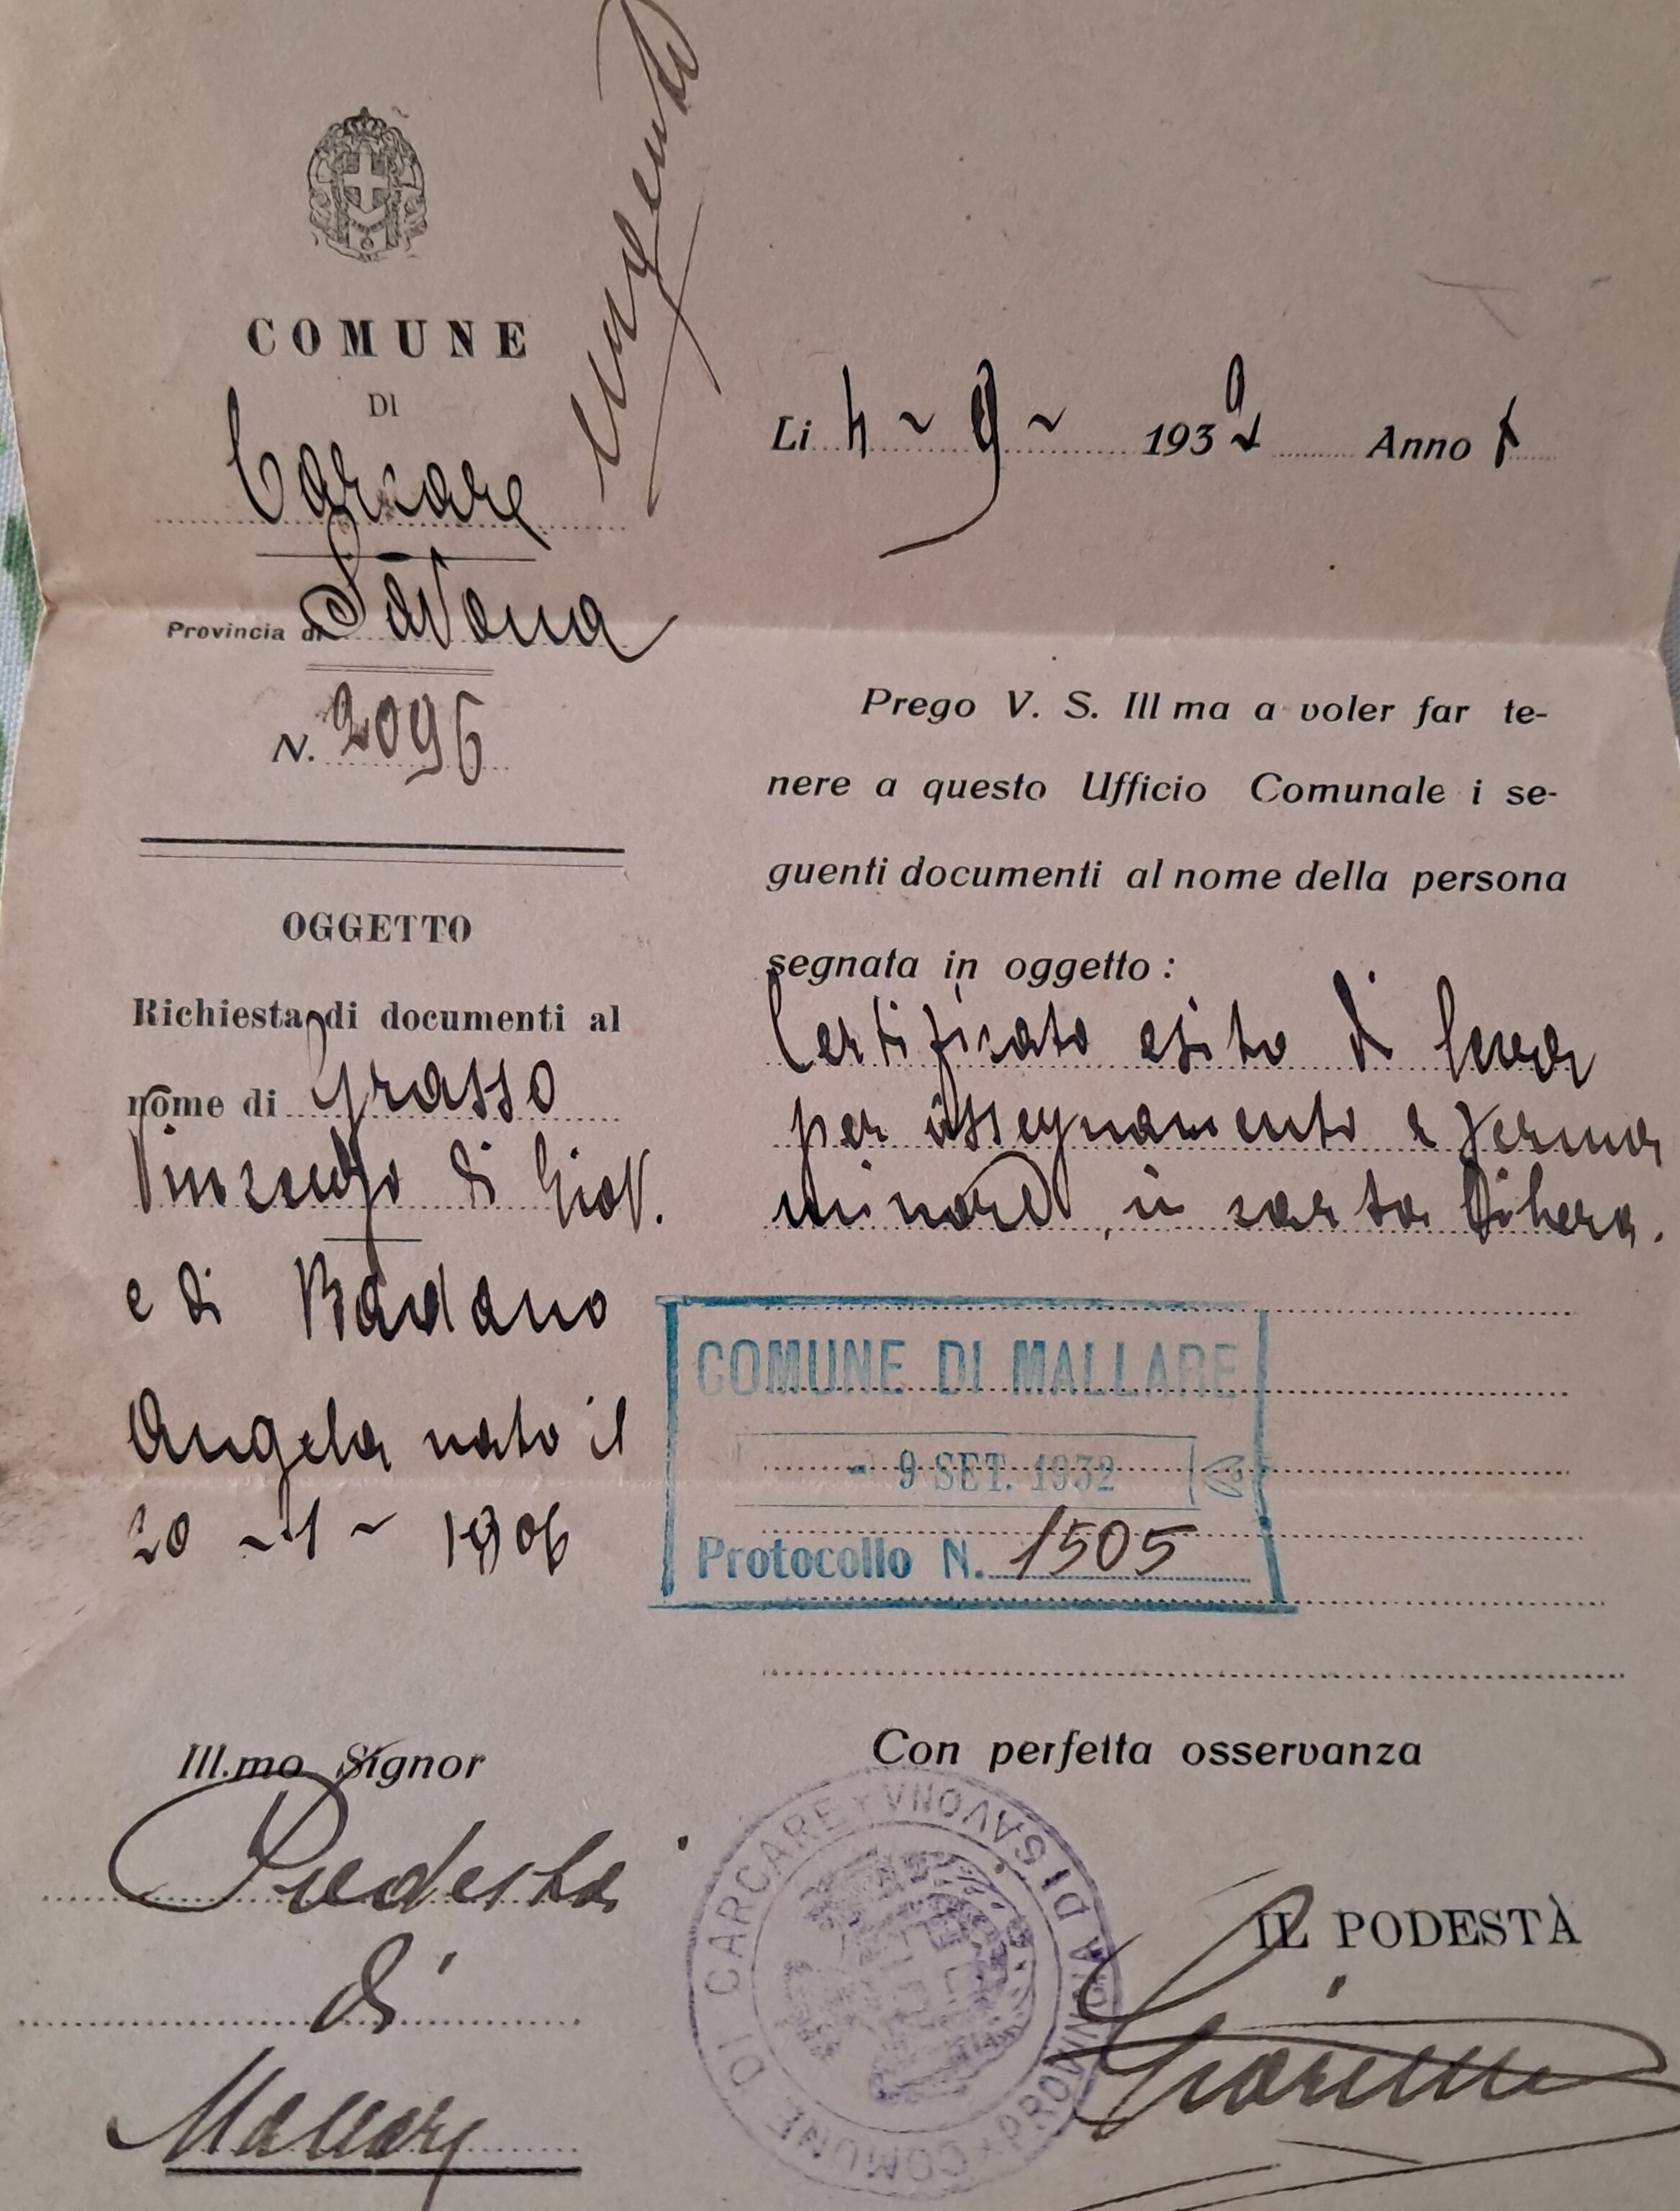 urgente
COMUNE
DI
Carcare
Provincia di Savona
N. 2096
OGGETTO
Richiesta di documenti al
nome di Grasso
Vincenzo di Giov.
e di Badano
Angela nato il
20 - 1 - 1906
Ill.mo Signor
Podestà
di
Mallare
Li 4 - 9 - 1932 Anno X
Prego V. S. Ill ma a voler far te-
nere a questo Ufficio Comunale i se-
guenti documenti al nome della persona
segnata in oggetto :
Certificato esito di leva
per assegnamento a ferma
minore, in carta libera.
COMUNE DI MALLARE
- 9 SET. 1932
Protocollo N. 1505
Con perfetta osservanza
IL PODESTÀ
COMUNE DI CARCARE * PROVINCIA DI SAVONA